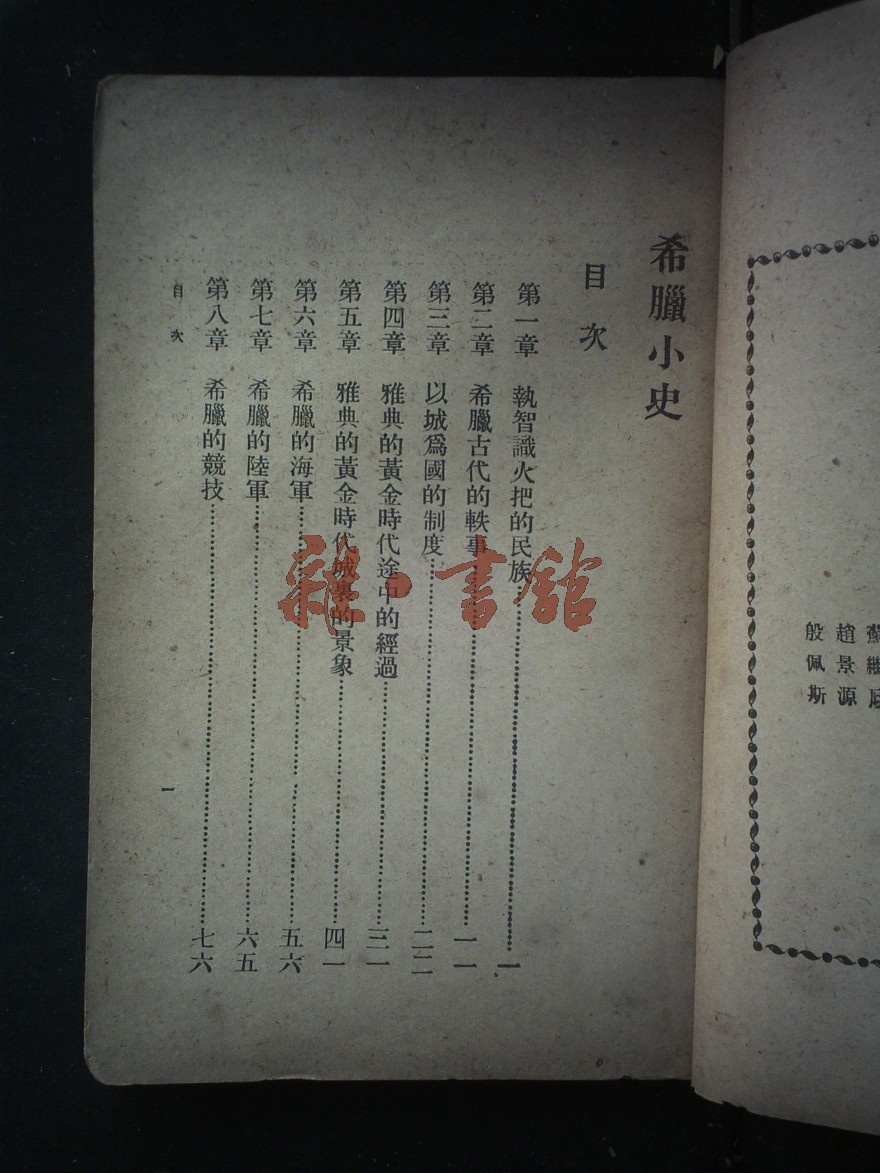 蘇繼
趙景源
殷佩斯
希臘小史
目次
第一章 執智識火把的民族……一
第二章 希臘古代的軼事……一一
第三章 以城爲國的制度……二二
第四章 雅典的黃金時代途中的經過……三一
第五章 雅典的黃金時代城裏的景象……四一
第六章 希臘的海軍……五六
第七章 希臘的陸軍……六五
第八章 希臘的競技……七六
目次
一
雜·書館